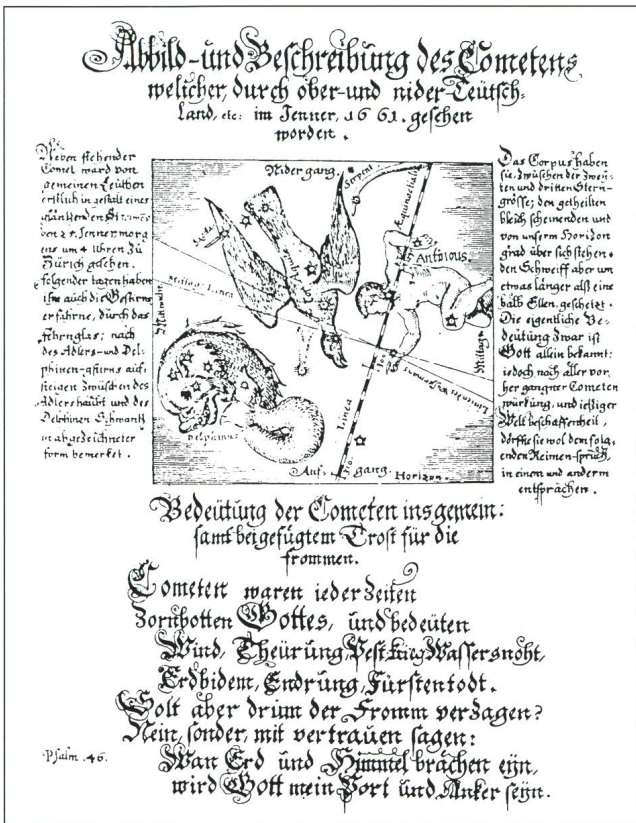 Abbild-und Beschreibung des Cometens
welicher, durch ober-und nider-Teütsch-
land, etc: im Jenner, 1661. gesehen
worden.
Neben stehender
Comet ward von
gemeinen Leüthen
erstlich in gestalt eines
gläntzenden
den 24 Jenner morg
ens um 4 Uhren zu
Zürich gsehen.
folgender tagen haben
ihne auch die Gestirns
erfahrne, durch das
fehrnglas; nach
des Adlers-und Del-
phinen-gstirns auf-
steigen zwüschen des
Adlers haübt und des
Delphinen Schwantz
in abgezeichneter
form bemerket.
Nidergang.
Serpent
Æquinoctialis
Antinous.
Mittnacht
Mittag
Linea
Delphinus
Auf-gang.
Horizon.
Das Corpus haben
sie, zwüschen der zwey-
ten und dritten Stern-
grösse; den getheilten
bleich scheinenden und
von unserm Horizon
grad über sich stehen-
den Schweiff aber um
etwas länger alß eine
halb Ellen, geschetzt.
Die eigentliche Be-
deütung zwar ist
Gott allein bekannt:
iedoch nach aller vor-
her gangner Cometen
würkung, und ietziger
Welt beschaffenheit,
dörffte sie wol dem folg-
enden Reimen-spruch,
in einem und anderm
entsprächen.
Bedeütung der Cometen insgemein:
samt beigefügtem Trost für die
frommen.
Cometen waren ieder Zeiten
Zornbotten Gottes, und bedeüten
Wind, Theürung, Pest, krieg, Wassersnöht,
Erdbidem, Endrung, Fürstentodt.
Solt aber drum der Fromm verzagen?
Nein, sonder, mit vertrauen sagen:
Psalm. 46.
Wan Erd und Himmel brächen eyn,
wird Gott mein Port und Anker seyn.